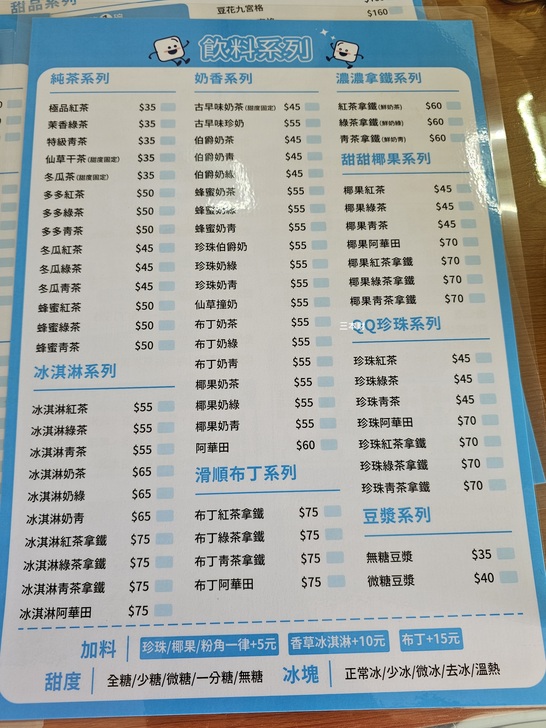 甜品系列
豆花九宮格
$160
飲料系列
純茶系列
極品紅茶 $35
茉香綠茶 $35
特級青茶 $35
仙草干茶(甜度固定) $35
冬瓜茶(甜度固定) $35
多多紅茶 $50
多多綠茶 $50
多多青茶 $50
冬瓜紅茶 $45
冬瓜綠茶 $45
冬瓜青茶 $45
蜂蜜紅茶 $50
蜂蜜綠茶 $50
蜂蜜青茶 $50
冰淇淋系列
冰淇淋紅茶 $55
冰淇淋綠茶 $55
冰淇淋青茶 $55
冰淇淋奶茶 $65
冰淇淋奶綠 $65
冰淇淋奶青 $65
冰淇淋紅茶拿鐵 $75
冰淇淋綠茶拿鐵 $75
冰淇淋青茶拿鐵 $75
冰淇淋阿華田 $75
奶香系列
古早味奶茶(甜度固定) $45
古早味珍奶 $55
伯爵奶茶 $45
伯爵奶青 $45
伯爵奶綠 $45
蜂蜜奶茶 $55
蜂蜜奶綠 $55
蜂蜜奶青 $55
珍珠伯爵奶 $55
珍珠奶綠 $55
珍珠奶青 $55
仙草撞奶 $55
布丁奶茶 $55
布丁奶綠 $55
布丁奶青 $55
椰果奶茶 $55
椰果奶綠 $55
椰果奶青 $55
阿華田 $60
滑順布丁系列
布丁紅茶拿鐵 $75
布丁綠茶拿鐵 $75
布丁青茶拿鐵 $75
布丁阿華田 $75
濃濃拿鐵系列
紅茶拿鐵(鮮奶茶) $60
綠茶拿鐵(鮮奶綠) $60
青茶拿鐵(鮮奶青) $60
甜甜椰果系列
椰果紅茶 $45
椰果綠茶 $45
椰果青茶 $45
椰果阿華田 $70
椰果紅茶拿鐵 $70
椰果綠茶拿鐵 $70
椰果青茶拿鐵 $70
QQ珍珠系列
珍珠紅茶 $45
珍珠綠茶 $45
珍珠青茶 $45
珍珠阿華田 $70
珍珠紅茶拿鐵 $70
珍珠綠茶拿鐵 $70
珍珠青茶拿鐵 $70
豆漿系列
無糖豆漿 $35
微糖豆漿 $40
加料 珍珠/椰果/粉角一律+5元 香草冰淇淋+10元 布丁+15元
甜度 全糖/少糖/微糖/一分糖/無糖 冰塊 正常冰/少冰/微冰/去冰/溫熱